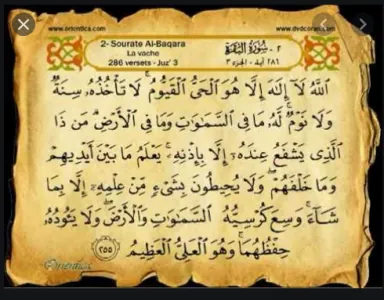 www.orientica.com
www.dvdcoran.com
2- Sourate Al-Baqara
La vache
286 versets - Juz' 3
٢ - سُورَةُ البَقَرَة
٢٨٦ آية - الجزء ٣
اللَّهُ لَآ إِلَٰهَ إِلَّا هُوَ الْحَيُّ الْقَيُّومُ ۚ لَا تَأْخُذُهُۥ سِنَةٌ
وَلَا نَوْمٌ ۚ لَّهُۥ مَا فِى السَّمَٰوَٰتِ وَمَا فِى الْأَرْضِ ۗ مَن ذَا
الَّذِى يَشْفَعُ عِندَهُۥٓ إِلَّا بِإِذْنِهِۦ ۚ يَعْلَمُ مَا بَيْنَ أَيْدِيهِمْ
وَمَا خَلْفَهُمْ ۖ وَلَا يُحِيطُونَ بِشَىْءٍ مِّنْ عِلْمِهِۦٓ إِلَّا بِمَا
شَآءَ ۚ وَسِعَ كُرْسِيُّهُ السَّمَٰوَٰتِ وَالْأَرْضَ ۖ وَلَا يَـُٔودُهُۥ
حِفْظُهُمَا ۚ وَهُوَ الْعَلِىُّ الْعَظِيمُ ٢٥٥
Orientica